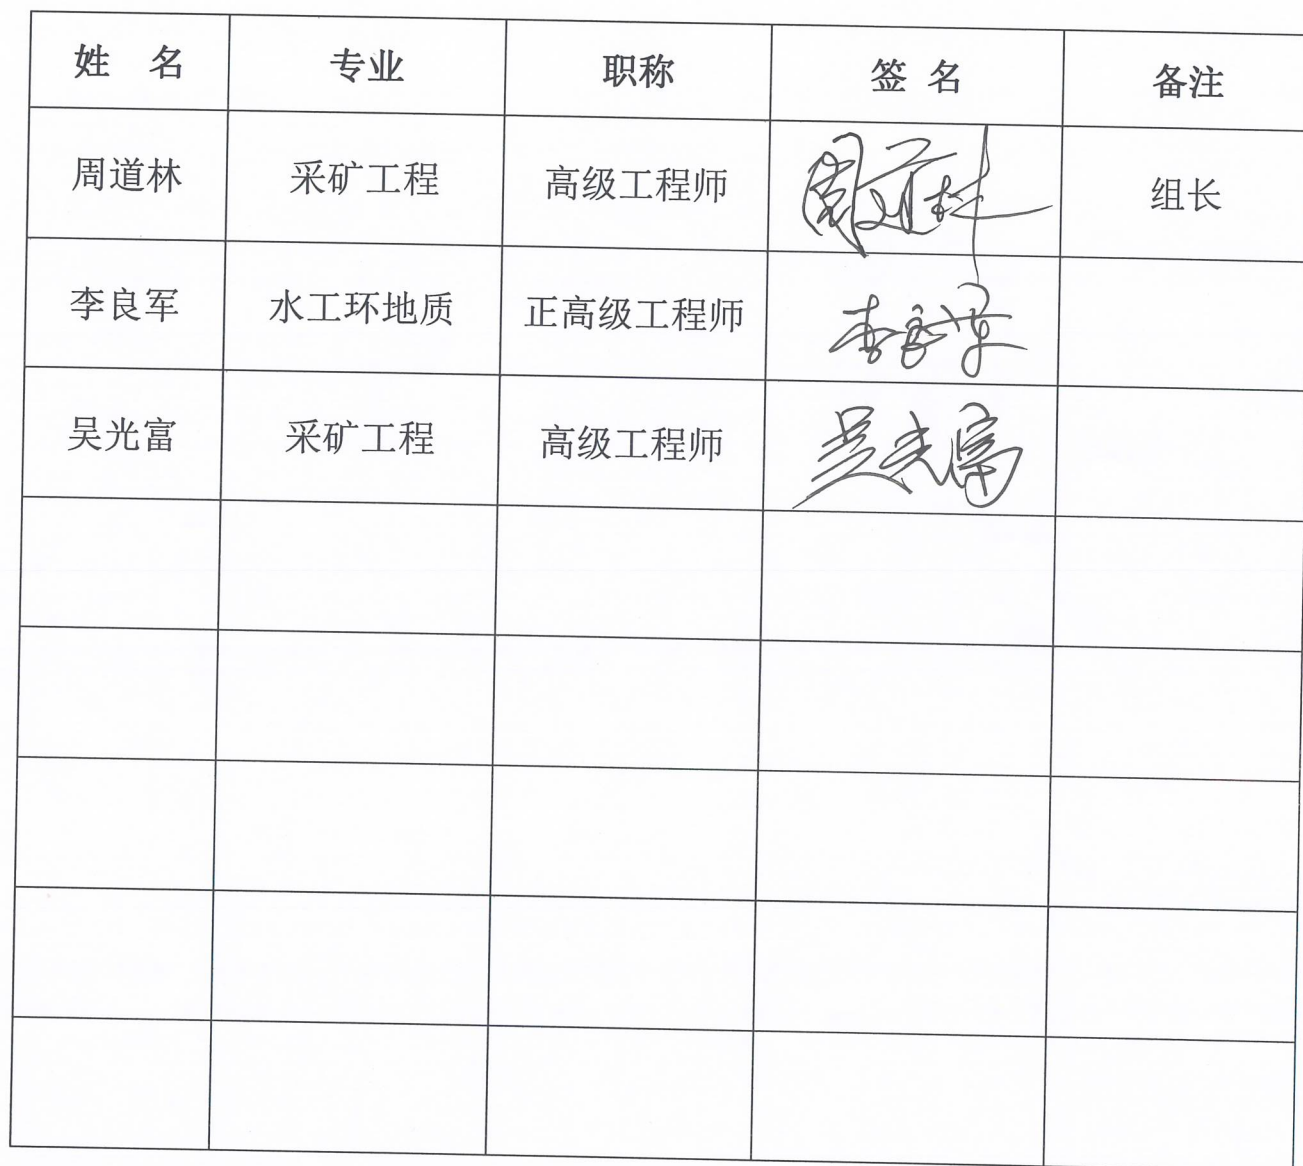 姓 名 专业 职称 签 名 备注
周道林 采矿工程 高级工程师 周道林 组长
李良军 水工环地质 正高级工程师 李良军
吴光富 采矿工程 高级工程师 吴光富